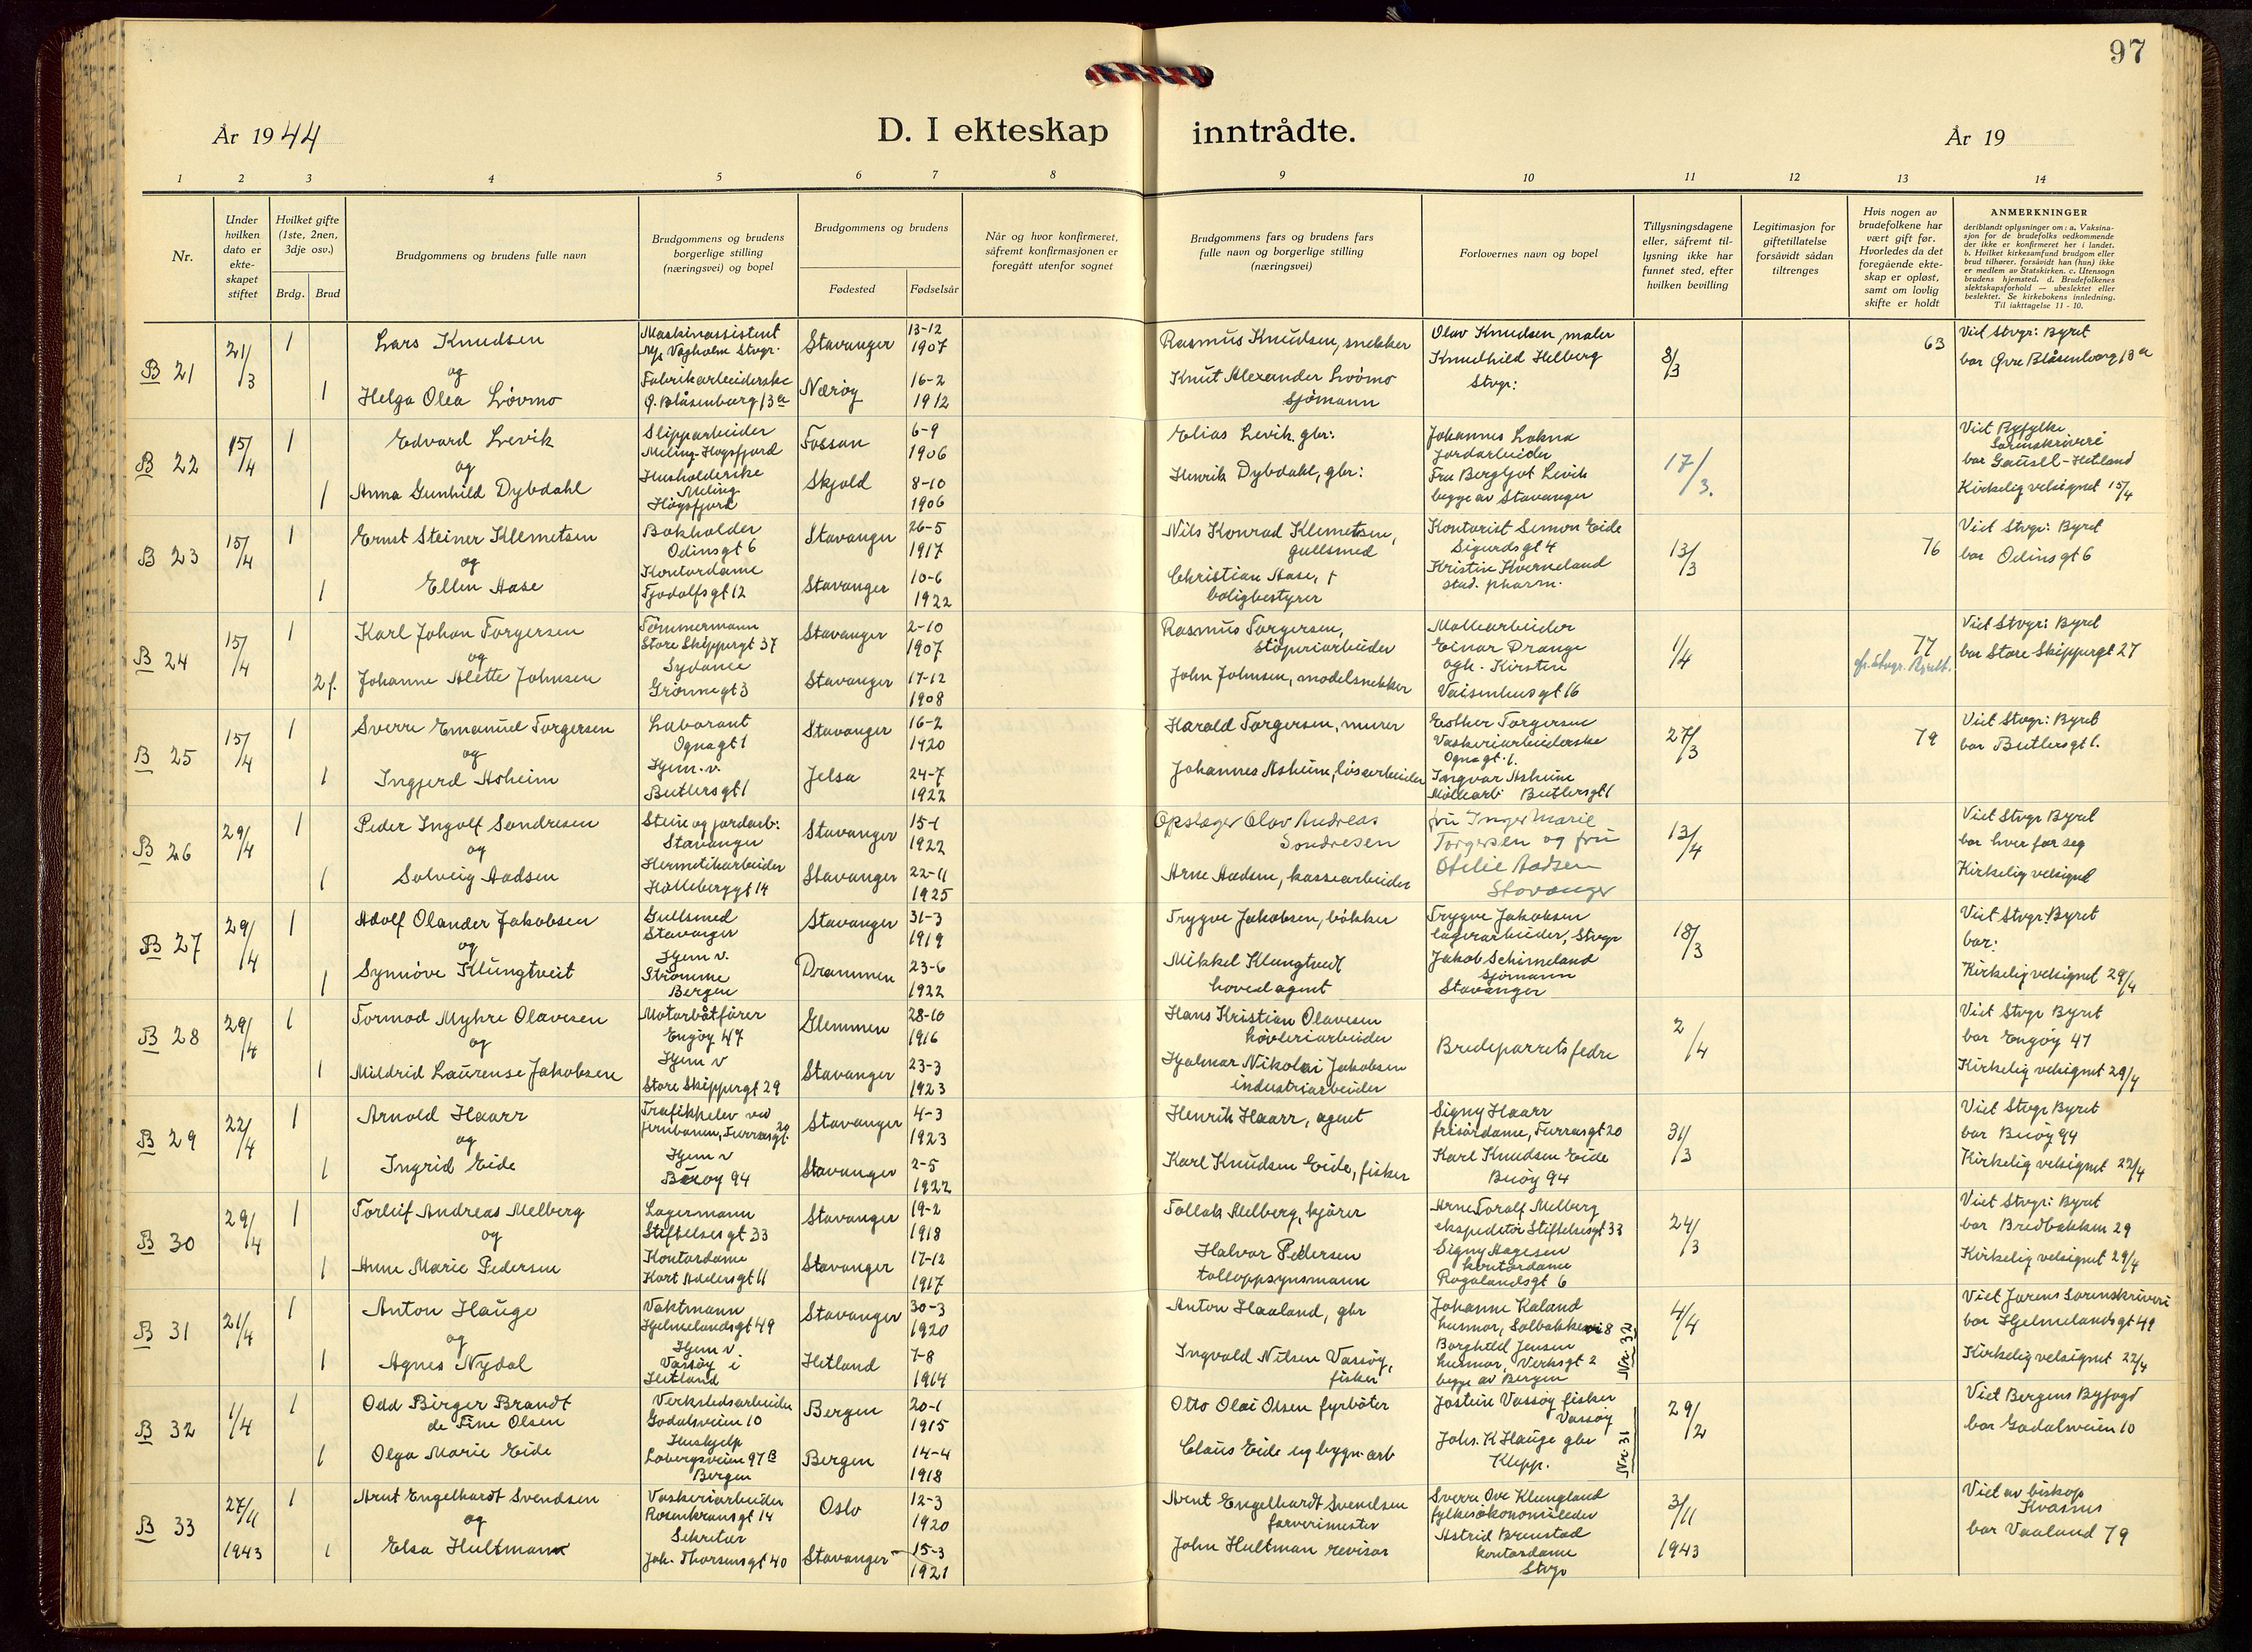 97
År 1944
D. I ekteskap inntrådte.
År 19
1 2 3 4 5 6 7 8 9 10 11 12 13 14
Nr.
Under hvilken dato er ekteskapet stiftet
Hvilket gifte (1ste, 2nen, 3dje osv.)
Brdg. Brud
Brudgommens og brudens fulle navn
Brudgommens og brudens borgerlige stilling (næringsvei) og bopel
Brudgommens og brudens
Fødested Fødselsår
Når og hvor konfirmeret, såfremt konfirmasjonen er foregått utenfor sognet
Brudgommens fars og brudens fars fulle navn og borgerlige stilling (næringsvei)
Forlovernes navn og bopel
Tillysningsdagene eller, såfremt tillysning ikke har funnet sted, efter hvilken bevilling
Legitimasjon for giftetillatelse forsåvidt sådan tiltrenges
Hvis nogen av brudefolkene har vært gift før. Hvorledes da det foregående ekteskap er opløst, samt om lovlig skifte er holdt
ANMERKNINGER
deriblandt oplysninger om: a. Vaksinasjon for de brudefolks vedkommende der ikke er konfirmeret her i landet. b. Hvilket kirkesamfund brudgom eller brud tilhører, forsåvidt han (hun) ikke er medlem av Statskirken. c. Utensogn brudens hjemsted. d. Brudefolkenes slektskapsforhold — ubeslektet eller beslektet. Se kirkebokens innledning. Til iakttagelse 11 - 10.
B 21
21/3
1
Lars Knudsen
og
1
Helga Olea Løvmo
Maskinassistent
M/s Vågholm Stvgr.
Fabrikarbeiderske
Ø. Blåsenborg 13a
Stavanger
13-12
1907
Nærøy
16-2
1912
Rasmus Knudsen, snekker
Knut Alexander Løvmo
sjømann
Olav Knudsen, maler
Knudhild Helberg
Stvgr:
8/3
63
Viet Stvgr: Byret
bor Øvre Blåsenborg 13a
B 22
15/4
1
Edvard Levik
og
1
Anna Gunhild Dybdahl
Slipparbeider
Meling-Høgsfjord
Husholderske
Meling
Høgsfjord
Fossan
6-9
1906
Skjold
8-10
1906
Elias Levik, gbr:
Henrik Dybdahl, gbr:
Johannes Lokna
Jordarbeider
Fru Bergljot Levik
begge av Stavanger
17/3.
Viet Ryfylke
Sorenskriveri
bor Gausel-Hetland
Kirkelig velsignet 15/4
B 23
15/4
1
Ernst Steiner Klemetsen
og
1
Ellen Aase
Bokholder
Odinsgt 6
Kontordame
Tjodolfsgt 12
Stavanger
26-5
1917
Stavanger
10-6
1922
Nils Konrad Klemetsen,
gullsmed
Christian Aase, †
boligbestyrer
Kontorist Simon Eide
Sigurdsgt 4
Kristin Kverneland
stud. pharm.
13/3
76
Viet Stvgr: Byret
bor Odinsgt 6
B 24
15/4
1
Karl Johan Torgersen
og
2 f.
Johanne Alette Johnsen
Tømmermann
Store Skippergt 37
Sydame
Grønnegt 3
Stavanger
2-10
1907
Stavanger
17-12
1908
Rasmus Torgersen,
støperiarbeider
John Johnsen, modelsnekker
Møllearbeider
Einar Drange
ogh. Kirsten
Vaisenhusgt 16
1/4
77
Viet Stvgr: Byret
bor Store Skippergt 27
B 25
15/4
1
Sverre Emanuel Torgersen
og
1
Ingjerd Asheim
Laborant
Ognagt 1
Hjem. v.
Butlersgt 1
Stavanger
16-2
1920
Jelsa
24-7
1922
Harald Torgersen, murer
Johannes Asheim, løsarbeider
Esther Torgersen
Vaskeriarbeiderske
Ognagt. 1.
Ingvar Asheim
Møllearb. Butlersgt 1
27/3
79
Viet Stvgr: Byret
bor Butlersgt 1.
B 26
29/4
1
Peder Ingolf Sondresen
og
1
Solveig Aadsen
Stein og jordarb:
Stavanger
Hermetikarbeider
Hilleberggt 14
Stavanger
15-1
1922
Stavanger
22-11
1925
Opslager Olav Andreas
Sondresen
Arne Aadsen, kassearbeider
fru Inger Marie
Torgersen og fru
Otelie Aadsen
Stavanger
13/4
Viet Stvgr Byret
bor hver for seg
Kirkelig velsignet
B 27
29/4
1
Adolf Olander Jakobsen
og
1
Synnøve Klungtveit
Gullsmed
Stavanger
Hjem v.
Strømme
Bergen
Stavanger
31-3
1919
Drammen
23-6
1922
Trygve Jakobsen, bøkker
Mikkel Klungtvedt
hovedagent
Trygve Jakobsen
lagerarbeider, Stvgr
Jakob Schimeland
sjømann
Stavanger
18/3
Viet Stvgr: Byret
bor:
Kirkelig velsignet 29/4
B 28
29/4
1
Tormod Myhre Olavesen
og
1
Mildrid Laurense Jakobsen
Motorbåtfører
Engøy 47
Hjem v
Store Skippergt 29
Glemmen
28-10
1916
Stavanger
23-3
1923
Hans Kristian Olavesen
høvleriarbeider
Hjalmar Nikolai Jakobsen
industriarbeider
Brudeparrets fedre
2/4
Viet Stvgr Byret
bor Engøy 47
Kirkelig velsignet 29/4
B 29
22/4
1
Arnold Haarr
og
1
Ingrid Eide
Trafikkelev ved
jernbanen, Turrasgt. 20
Hjem v
Buøy 94
Stavanger
4-3
1923
Stavanger
2-5
1922
Henrik Haarr, agent
Karl Knudsen Eide, fisker
Signy Haarr
frisørdame, Turrasgt 20
Karl Knudsen Eide
Buøy 94
31/3
Viet Stvgr Byret
bor Buøy 94
Kirkelig velsignet 22/4
B 30
29/4
1
Torleif Andreas Melberg
og
1
Anne Marie Pedersen
Lagermann
Stiftelsesgt 33
Kontordame
Kort Adelersgt 11
Stavanger
19-2
1918
Stavanger
17-12
1917
Tollak Melberg, kjører
Halvor Pedersen
tolloppsynsmann
Arne Toralf Melberg
ekspeditør Stiftelsesgt 33
Signy Aagesen
kontordame
Rogalandsgt 6
24/3
Viet Stvgr: Byret
bor Bredbakken 29
Kirkelig velsignet 29/4
B 31
21/4
1
Anton Hauge
og
1
Agnes Nydal
Vaktmann
Hjelmelandsgt 49
Hjem v
Vassøy i
Hetland
Stavanger
30-3
1920
Hetland
7-8
1914
Anton Haaland, gbr
Ingvald Nilsen Vassøy,
fisker
Johanne Kaland
husmor, Solbakken 8
Borghild Jensen
husmor, Verksgt 2
begge av Bergen
Nr. 32
4/4
Viet Jærens Sorenskriveri
bor Hjelmelandsgt 49
Kirkelig velsignet 22/4
B 32
1/4
1
Odd Birger Brandt
de Fine Olsen
1
Olga Marie Eide
Verkstedsarbeider
Godalsveien 10
Hushjelp
Løbergsveien 97B
Bergen
Bergen
20-1
1915
Bergen
14-4
1918
Otto Olai Olsen fyrbøter
Claus Eide ug bygn. arb
Jostein Vassøy fisker
Vassøy
Johs. K Hauge gbr
Klepp.
Nr. 31
29/2
Viet Bergens Byfogd
bor Godalsveien 10
B 33
27/11
1943
1
Arnt Engelhardt Svendsen
og
1
Elsa Hultmann
Vaskeriarbeider
Rosenkransgt 14
Sekretær
Joh. Thorsensgt 40
Oslo
12-3
1920
Stavanger
15-3
1921
Arnt Engelhardt Svendsen
farverimester
John Hultman revisor
Sverre Ove Klungland
fylkesøkonomileder
Astrid Brenstad
kontordame
Stvgr
3/11
1943
Viet av biskop
Kvasnes
bor Vaaland 79